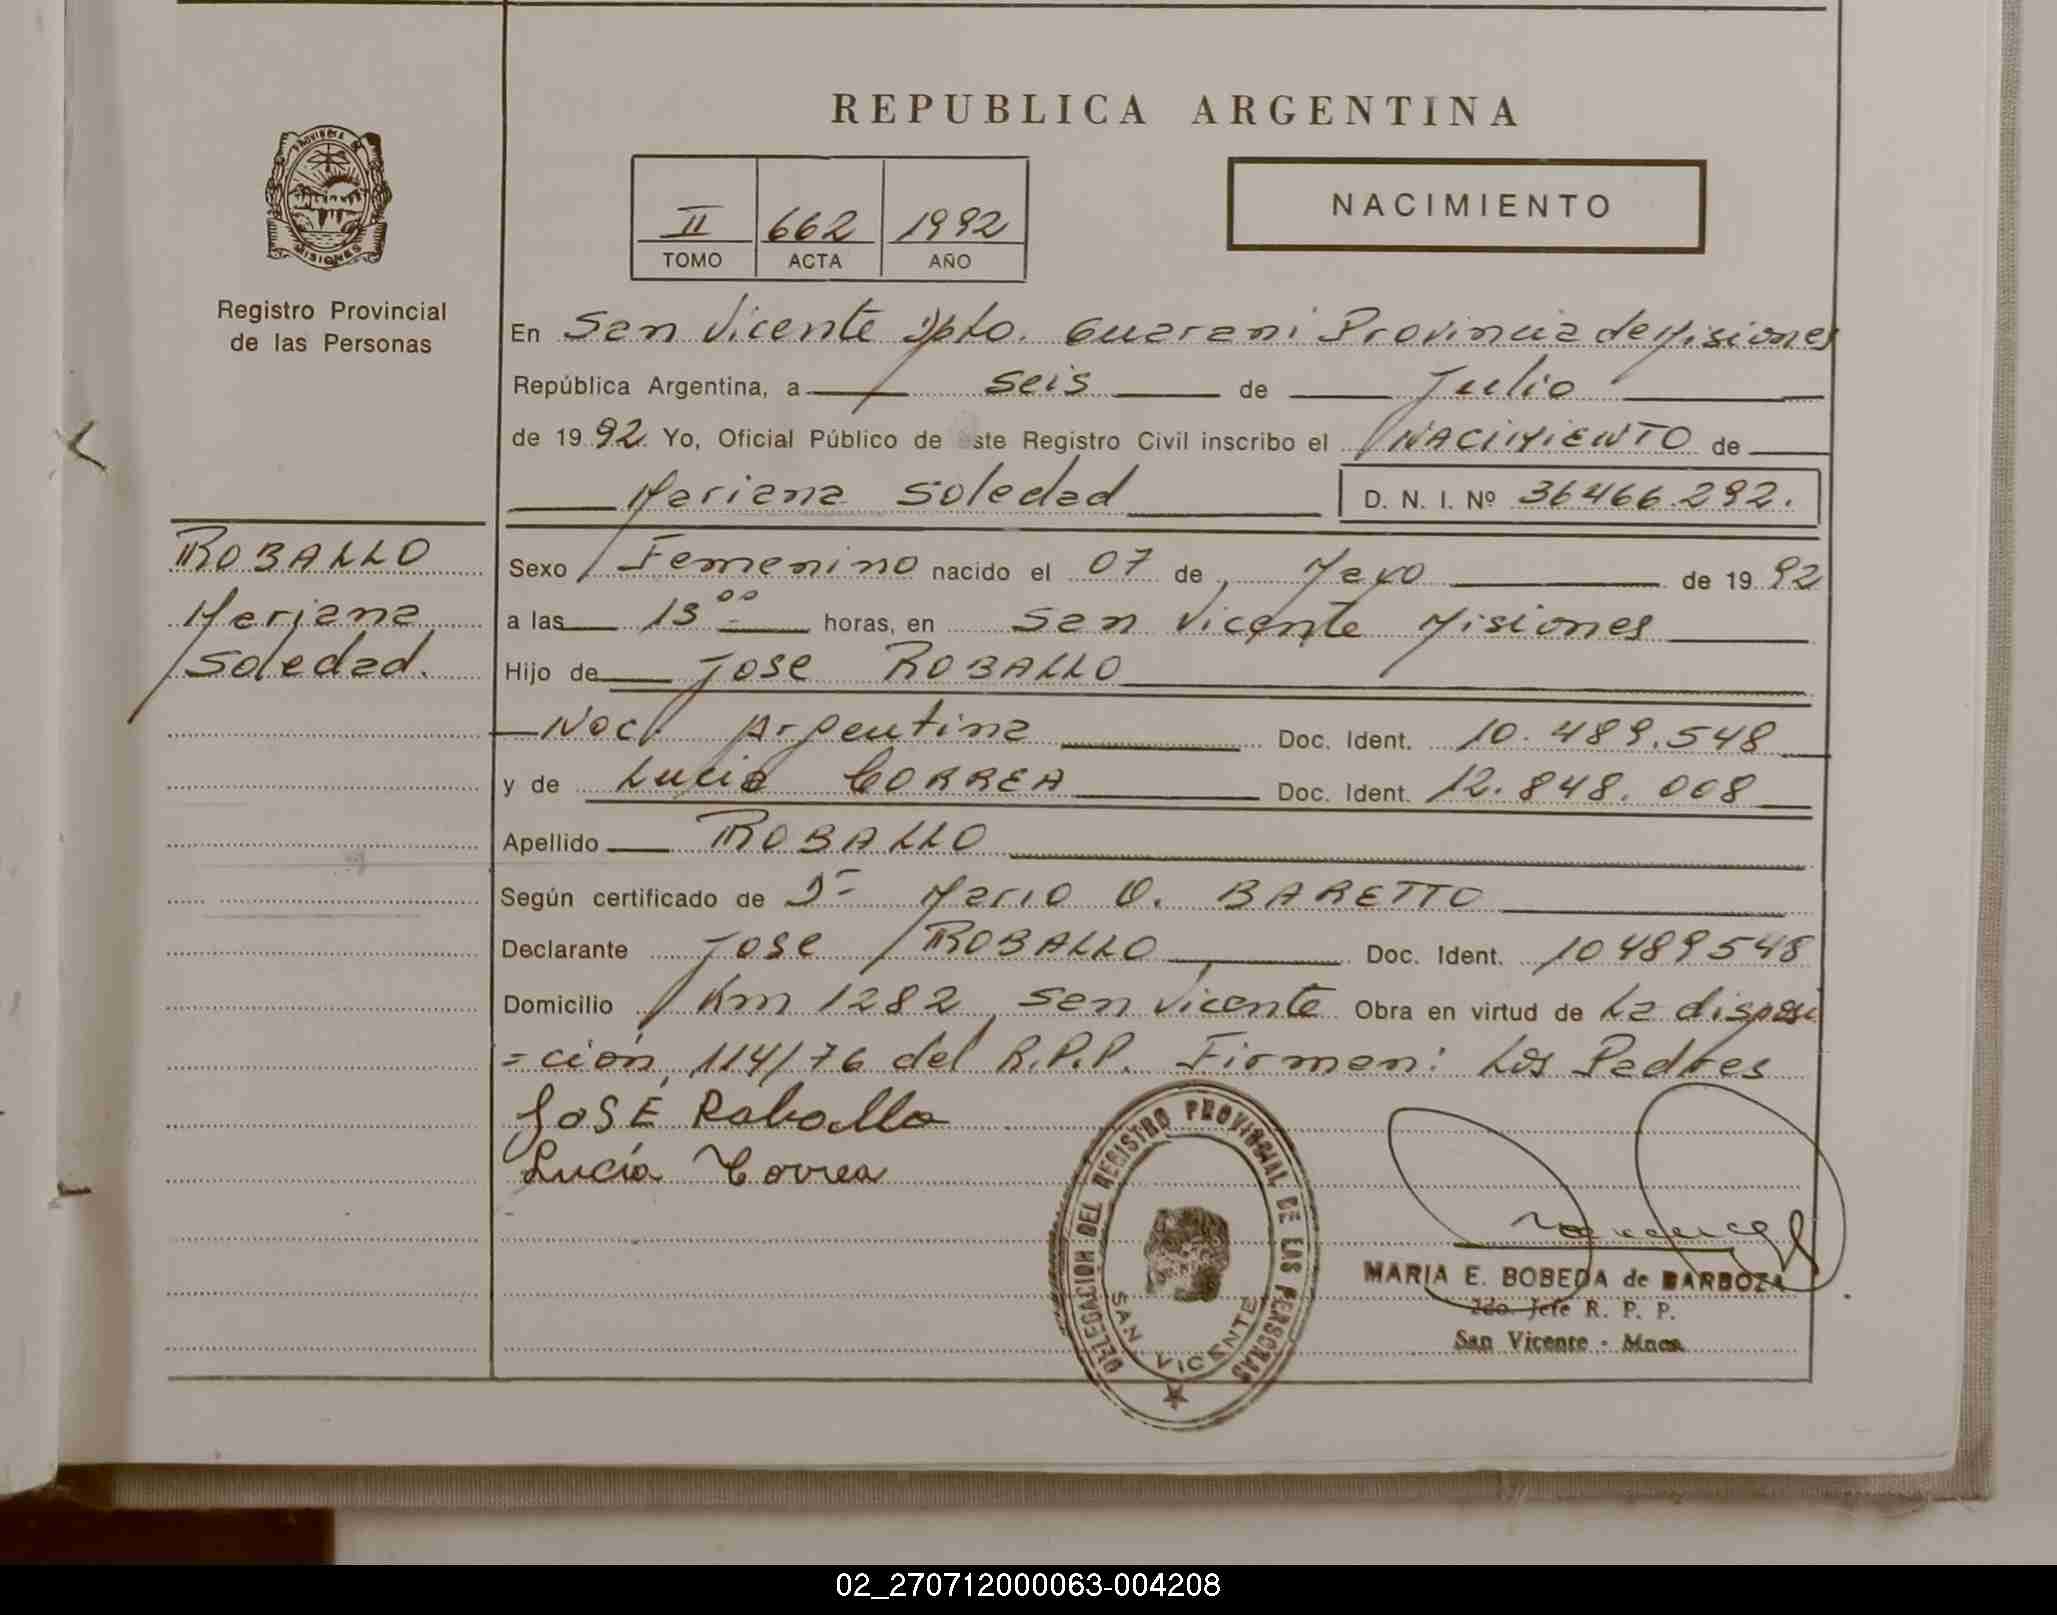 REPUBLICA ARGENTINA
PROVINCIA DE MISIONES
Registro Provincial
de las Personas
II 662 1992
TOMO ACTA AÑO
NACIMIENTO
En San Vicente Dpto. Guarani Provincia de Misiones
República Argentina, a seis de Julio
de 1992. Yo, Oficial Público de este Registro Civil inscribo el NACIMIENTO de
Mariana Soledad D. N. I. Nº 36466.292.
ROBALLO
Mariana
Soledad.
Sexo Femenino nacido el 07 de Mayo de 1992
a las 13 00 horas, en San Vicente Misiones
Hijo de Jose ROBALLO
Nac. Argentina Doc. Ident. 10.489.548
y de Lucia CORREA Doc. Ident. 12.848.008
Apellido ROBALLO
Según certificado de Dr Mario O. BARETTO
Declarante Jose ROBALLO Doc. Ident. 10489548
Domicilio Km 1282, San Vicente Obra en virtud de La disposi
=ción 114/76 del R.P.P. Firman: Los Padres
JOSE Roballo
Lucía Correa
DELEGACION DEL REGISTRO PROVINCIAL DE LAS PERSONAS
SAN VICENTE
MARIA E. BOBEDA de BARBOZA
2do. Jefe R. P. P.
San Vicente - Mnes.
02_270712000063-004208